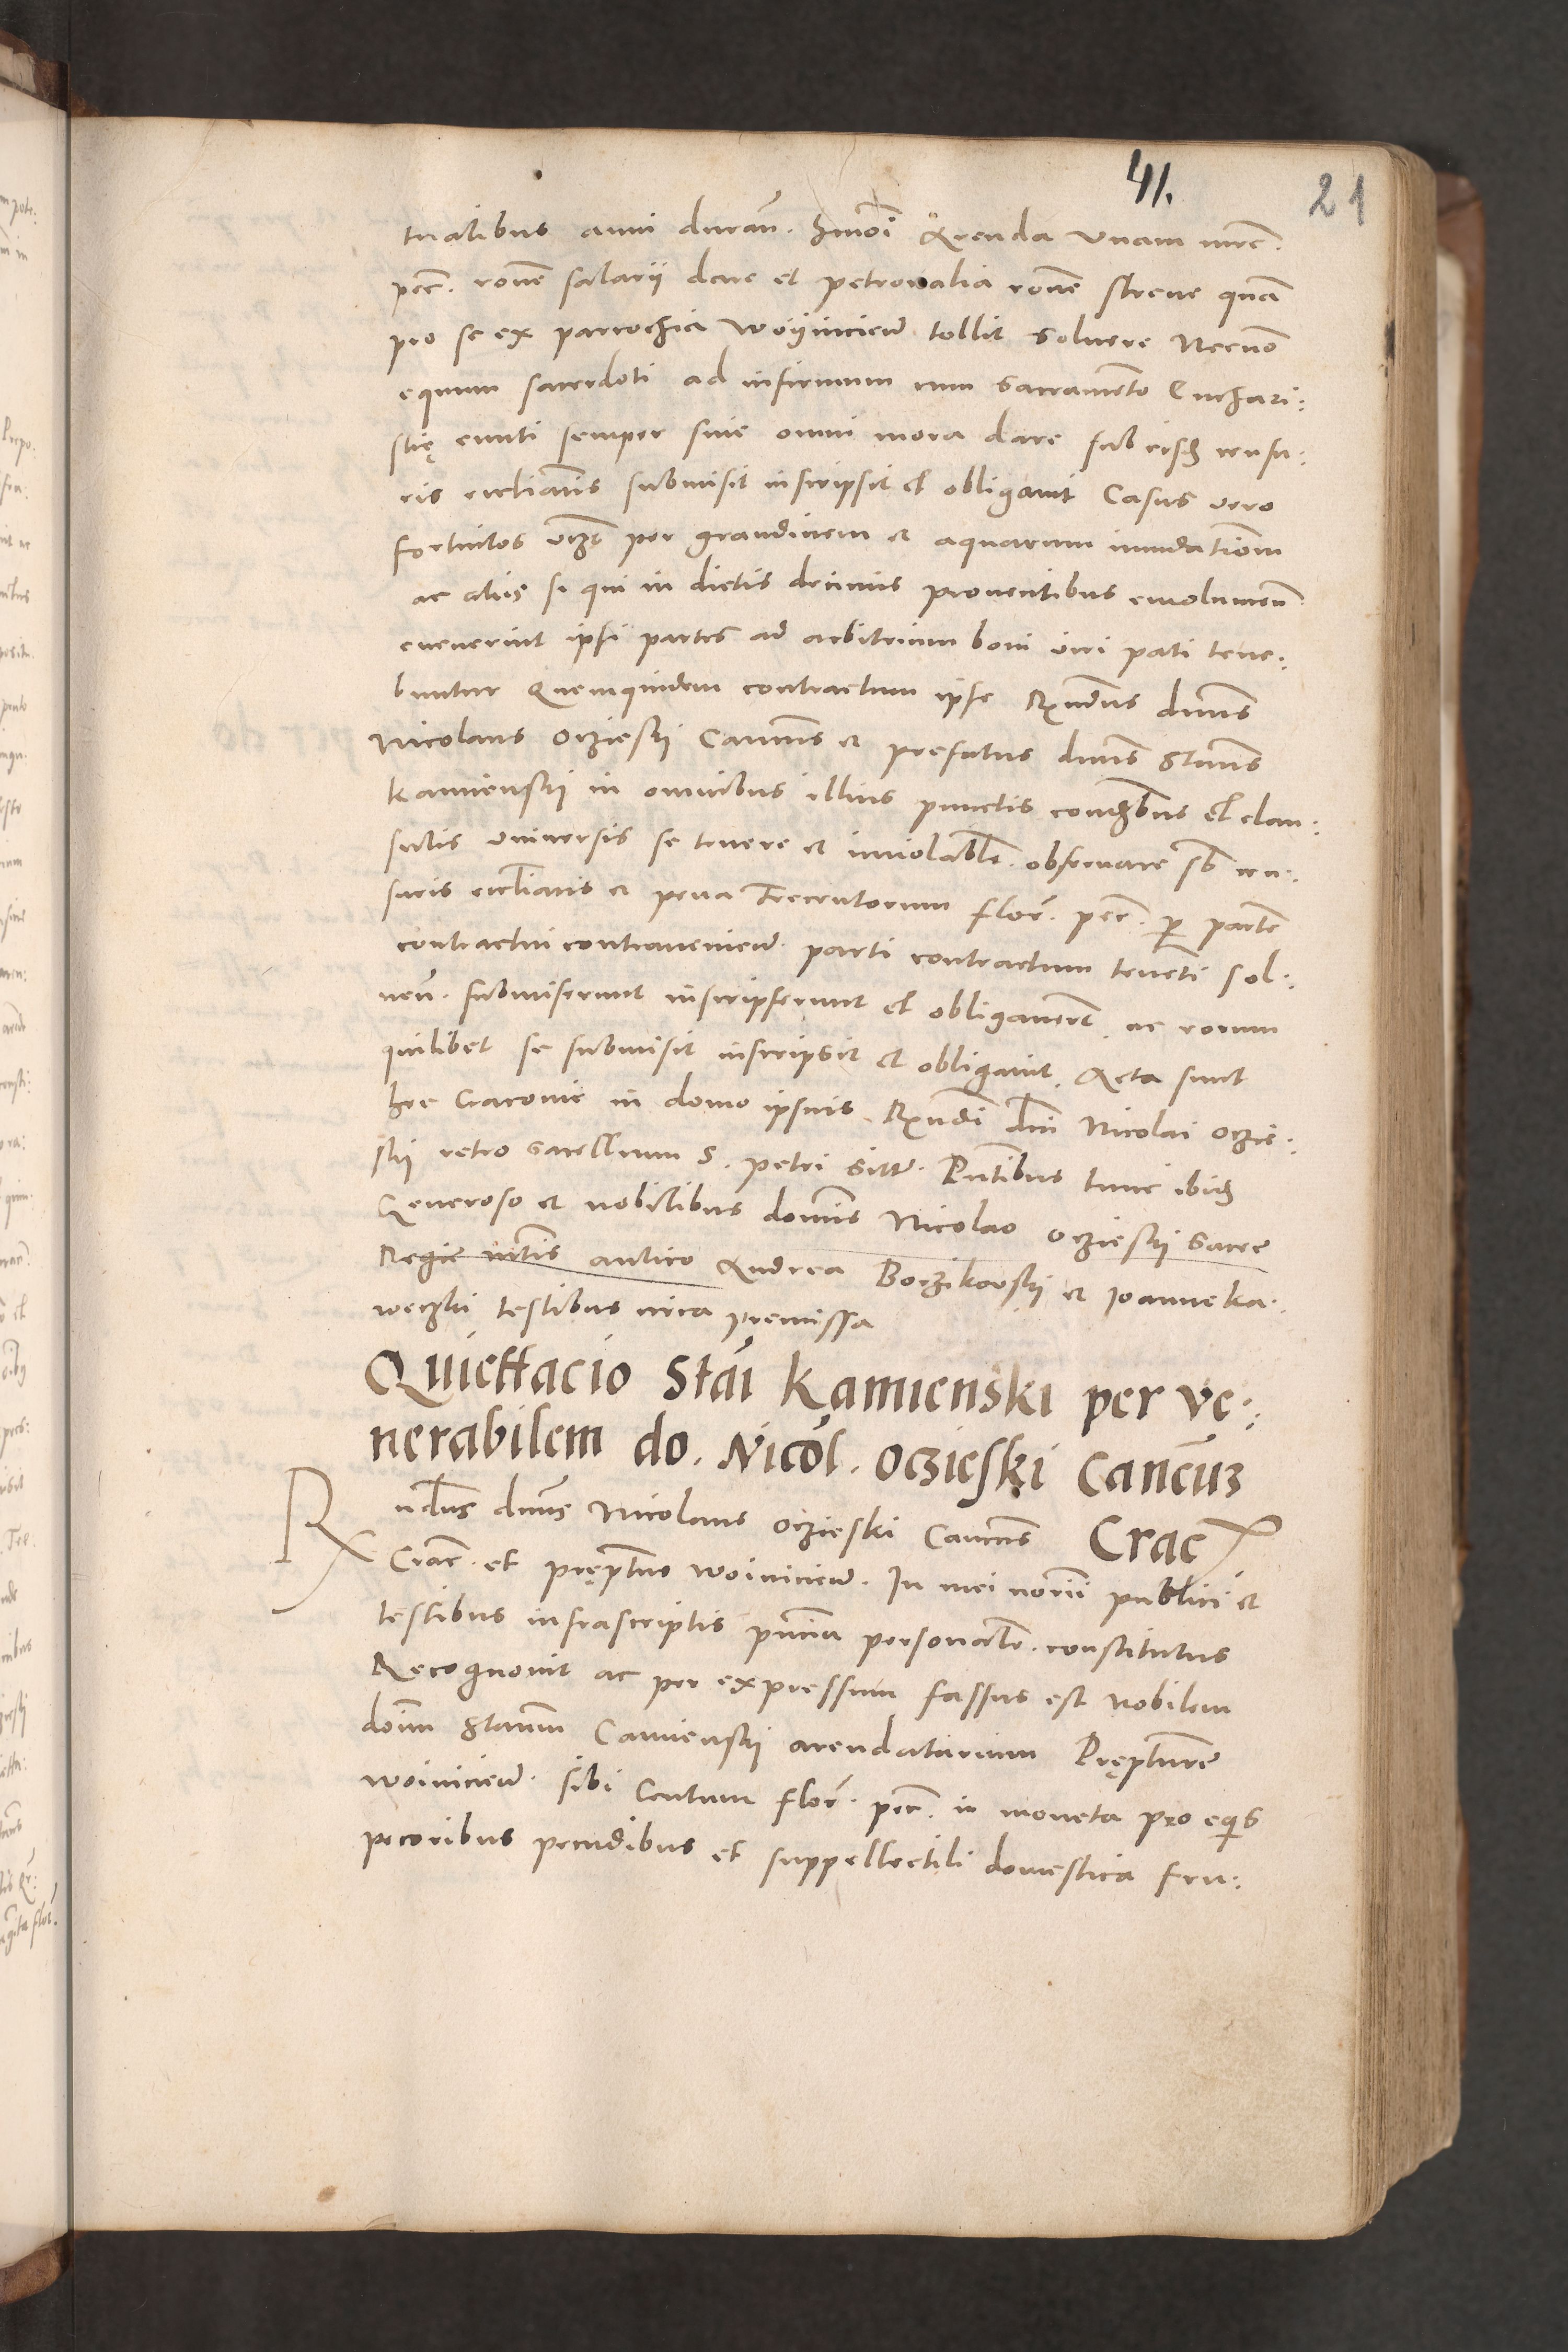 41.
21
tualibus anni duran. hmoi Arenda vnam mrc.
pec. rone salarii dare et petronalia rone strene quam
pro se ex parrochia Woÿnicien tollit soluere Necno
equum sacerdoti ad infirmum cum sacramento Euchari:
stię eunti semper sine omni mora dare sub eisd censu:
ris eccliasticis submisit inscripsit et obligauit Casus vero
fortuitos vtpt per grandinem et aquarum inundationem
ac alios si qui in dictis decimis prouentibus emolumen.
euenerint ipsi partes ad arbitrium boni viri pati tene:
buntur Quemquidem contractum ipse Rxndus dnus
Nicolaus Oczieskÿ Cancus et prefatus dnus Stanus
Kamienskÿ in omnibus illius punctis condibus et clau:
sulis vniuersis se tenere et inuiolablr. obseruare sb cen:
suris eccliasticis et pena Trecentorum flor. pec. per partem
contractui contrauenien. parti contractum tenenti sol:
uen. submiserunt inscripserunt et obligauerunt, ac eorum
quilibet se submisit inscripsit et obligauit. Acta sunt
hec Cracouie in domo ipsius Rxndi dni Nicolai Oczie:
skÿ retro sacellum S. Petri sitta. Pntibus tunc ibid
Generoso et nobilibus domnis Nicolao Oczieskÿ Sacre
Regie mtis aulico Andrea Boczikowskÿ et Joanne Ka:
weczki testibus circa premissa
Quiettacio Stai Kamienski per ve:
nerabilem do. Nicol. Oczieski Cancum
Crac
Rxndus dnus Nicolaus Oczieski Cancus
Crac. et Pręptus Woinicien. In mei notrii publici et
testibus infrascriptis pncia personalr. constitutus
Recognouit ac per expressum fassus est Nobilem
domm Stanum Camienskÿ arendatarium Prępture
Woinicien. sibi Centum flor. pec. in moneta pro equis
pecoribus pecudibus et suppellectili domestica fru: